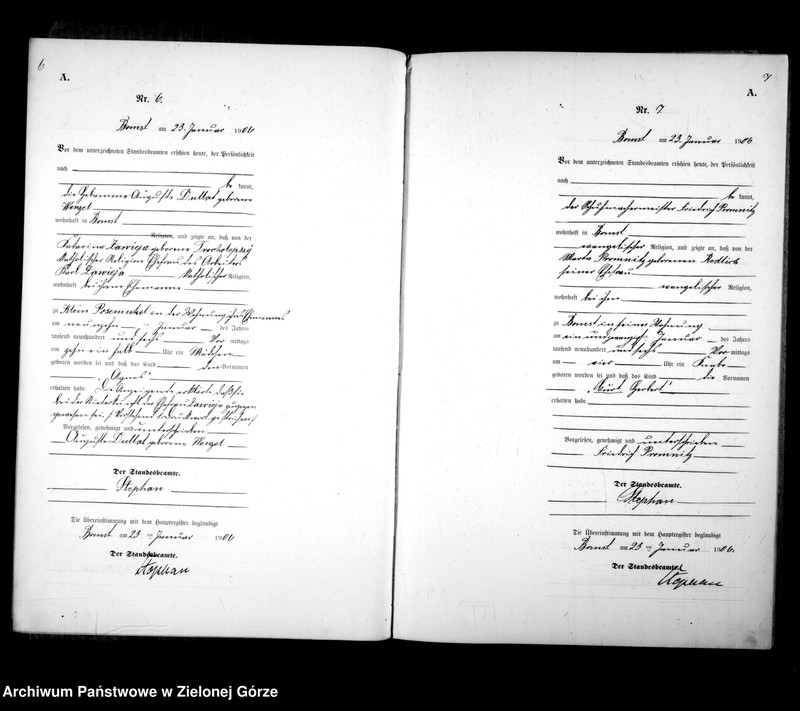 6
A.
Nr. 6.
Bomst am 23. Januar 1906
Vor dem unterzeichneten Standesbeamten erschien heute, der Persönlichkeit
nach
be kannt,
die Hebamme Auguste Dullat geborene
Wenzel
wohnhaft in Bomst
Religion, und zeigte an, daß von der
Katarina Zawieja geborene
Katholischer Religion Ehefrau des Arbeiters
Karl Zawieja Katholischer Religion,
wohnhaft bei ihrem Ehemanne
zu Klein Posemukel in der Wohnung ihres Ehemannes
am neunzehn ten Januar des Jahres
tausend neunhundert und sechs Vor mittags
um zehn ein halb Uhr ein Mädchen
geboren worden sei und daß das Kind den Vornamen
"Agnes"
erhalten habe. Die Anzeigende erklärte, daß sie
bei der Niederkunft der Ehefrau Zawieja zugegen
gewesen sei. / Vorstehend 1 Druckwort gestrichen /
Vorgelesen, genehmigt und unterschrieben
Auguste Dullat geborene Wenzel
Der Standesbeamte.
Stephan
Die Übereinstimmung mit dem Hauptregister beglaubigt
Bomst am 23 ten Januar 1906
Der Standesbeamte.
Stephan
7
A.
Nr. 7.
Bomst am 23. Januar 1906
Vor dem unterzeichneten Standesbeamten erschien heute, der Persönlichkeit
nach
be kannt,
der Schuhmachermeister Friedrich Promnitz
wohnhaft in Bomst
evangelischer Religion, und zeigte an, daß von der
Marta Promnitz geborenen
seiner Ehefrau
evangelischer Religion,
wohnhaft bei ihm
zu Bomst in seiner Wohnung
am ein und zwanzigsten Januar des Jahres
tausend neunhundert und sechs Vor mittags
um vier Uhr ein Knabe
geboren worden sei und daß das Kind die Vornamen
"Kurt Herbert"
erhalten habe.
Vorgelesen, genehmigt und unterschrieben
Friedrich Promnitz
Der Standesbeamte.
Stephan
Die Übereinstimmung mit dem Hauptregister beglaubigt
Bomst am 23 ten Januar 1906.
Der Standesbeamte.
Stephan
Archiwum Państwowe w Zielonej Górze